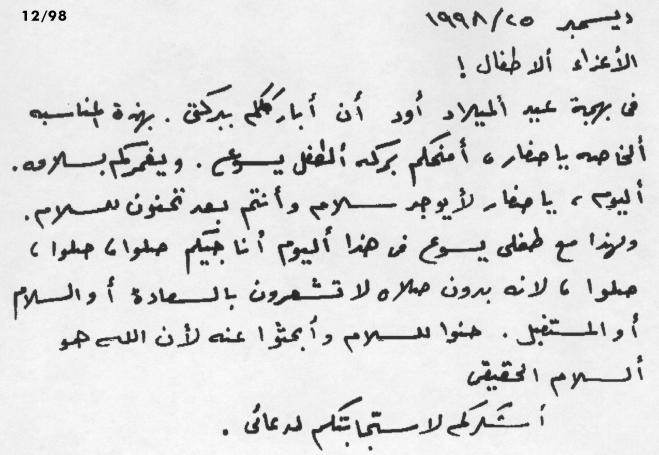 12/98
ديسمبر ١٩٩٨/٢٥
الأعزاء ألاطفال !
فى بهجة عيد ألميلاد أود أن أبارككم ببركتى . بهذة المناسبه
ألخاصه ياصغار ، أمنحكم بركه ألطفل يسوع . ويغمركم بسلامه .
أليوم ، ياصغار لأيوجد سلام وأنتم بعد تحنون للسلام .
ولهذا مع طفلى يسوع فى هذا أليوم أنا جيكم صلوا ، صلوا ،
صلوا ، لانه بدون صلاه لاتشعرون بالسعادة أو السلام
أو المستقبل . حنوا للسلام وأبحثوا عنه لأن الله هو
ألسلام الحقيقى
أشكركم لاستجابتكم لدعائى .